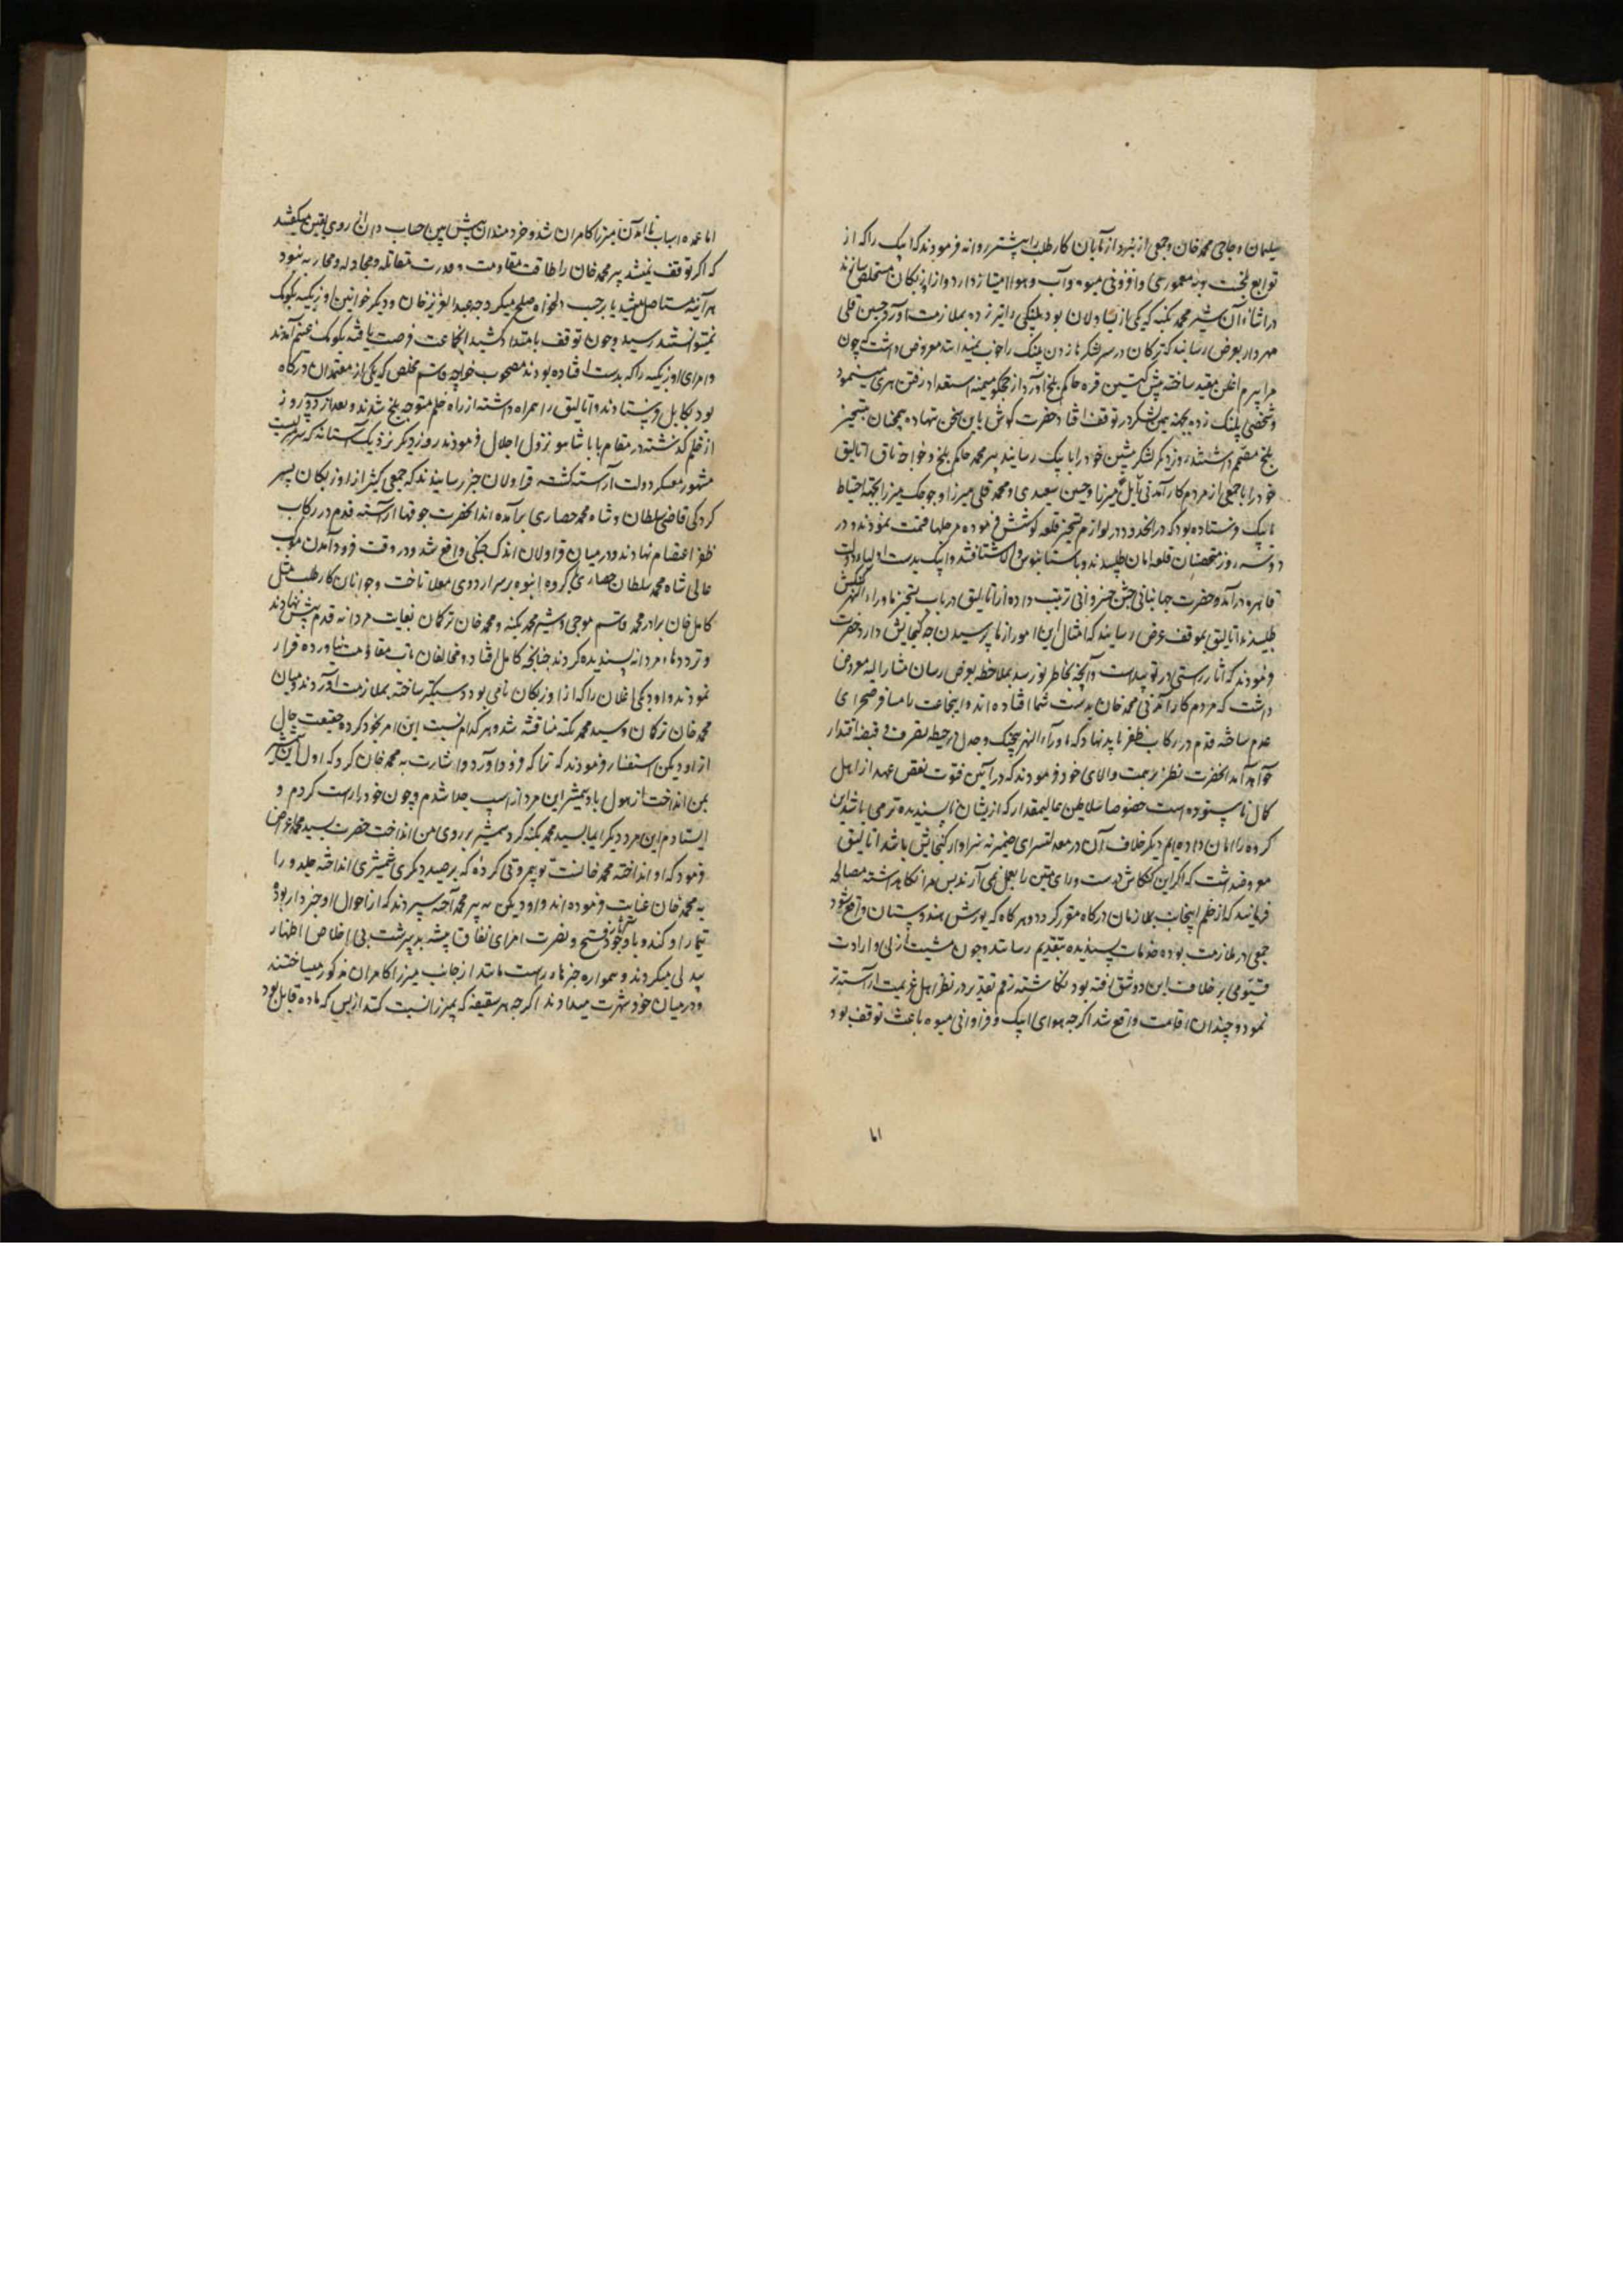 سلیمان و حاجی محمد خان و جمعی از نبرد آزمایان کارطلب را پیشتر روانه فرمودند که ایبک را که از
توابع بلخست و بمعموری و افزونی میوه و آب و هوا امتیاز دارد از اوزبکان مستخلص سازند
در اثناء آن شیر محمد بکنه که یکی از یساولان بود پلنگی را تیر زده بملازمت آورد حسین قلی
مهردار بعرض رسانید که ترکان در سر لشکرها زدن پلنگ را خوب نمیدانند معروض داشت که چون
مرا بیرم اغلن مقید ساخته پیش کیتین قره حاکم بلخ آورد از جیجکتو میمنه استعداد رفتن هری مینمود
شخصی پلنگ زده بجهت همین لشکر در توقف افتاد حضرت گوش باین سخن ننهاده همچنان بتسخیر
بلخ مصمم داشتند روز دیگر لشکر پیشین خود را بایبک رسانید پیر محمد حاکم بلخ و خواجه باق اتالیق
خود را با جمعی از مردم کارآمدنی میرزا و حسین سعیدی و محمد قلی میرزا و جوجک میرزا بجهت احتیاط
بایبک فرستاده بود که در آنحدود در لوازم تسخیر قلعه کوشش فرموده مرحلها قسمت نمودند و در
دو سه روز متحصنان قلعه امان طلبیدند و بآستانبوس والا شتافتند و ایبک بدست اولیاء دولت
قاهره درآمد و حضرت جهانبانی جشن خسروانی ترتیب داده از اتالیق در باب تسخیر ماوراء النهر کنکش
طلبیدند اتالیق بموقف عرض رسانید که امثال این امور از ما پرسیدن چه گنجایش دارد حضرت
فرمودند که آثار راستی در تو پیداست و آنچه بخاطر تو رسد بملاحظه بعرض رسان مشارالیه معروض
داشت که مردم کارآمدنی محمد خان بدست شما افتاده اند و اینجماعت را مسافر صحرای
عدم ساخته قدم در رکاب ظفر باید نهاد که ماوراء النهر بیجنگ و جدل در حیطه تصرف و قبضه اقتدار
خواهد آمد آنحضرت نظر بر همت والای خود فرمودند که در آئین فتوت نقض عهد از اهل
کمال ناستوده است خصوصا سلاطین عالیمقدار که از ایشان ناپسندیده تر می باشد این
گروه را امان داده ایم دیگر خلاف آن در معدلتسرای ضمیر نه سزاوار گنجایش باشد اتالیق
معروضداشت که اگر این کنکاش درست و رای متین را بعمل نمی آرند پس مرا نگاه داشته مصالحه
فرمایند که از خلم اینجانب بملازمان درگاه مقرر گردد و هرگاه که یورش هندوستان واقع شود
جمعی در ملازمت بوده خدمات پسندیده بتقدیم رسانند و چون مشیت ازلی و ارادت
قیومی بر خلاف این دو شق رفته بود نگاشته رقم تقدیر در نظر اهل عزیمت آراسته تر
نمود و چندان اقامت واقع شد اگرچه هوای ایبک و فراوانی میوه باعث توقف بود
اما
اما عمده اسباب ناآمدن میرزا کامران شد و خردمندان پیش بین حساب دان از روی یقین میگفتند
که اگر توقف نمیشد پیر محمد خان را طاقت مقاومت و قدرت مقاتله و مجادله و محاربه نبود
هر آئینه مستاصل میشد یا بر حسب دلخواه صلح میکرد چه عبدالعزیز خان و دیگر خوانین اوزبکیه بکومک
نمیتوانستند رسید و چون توقف بامتداد کشید آنجماعت فرصت یافته بکومک غنیم آمدند
و امرای اوزبکیه را که بدست افتاده بودند مصحوب خواجه قاسم مخلص که یکی از معتمدان درگاه
بود بکابل فرستادند و اتالیق را همراه داشته از راه خلم متوجه بلخ شدند و بعد از دو روز
از خلم گذشته در مقام بابا شاهو نزول اجلال فرمودند روز دیگر نزدیک آستانه که بمزاریست
مشهور معسکر دولت آراسته گشت قراولان خبر رسانیدند که جمعی کثیر از اوزبکان بسر
کردگی قاضی سلطان و شاه محمد حصاری برآمده اند آنحضرت جوقها آراسته قدم در رکاب
ظفر اعتصام نهادند و در میان قراولان اندک جنگی واقع شد و در وقت فرود آمدن موکب
عالی شاه محمد سلطان حصاری با گروه انبوه بر سر اردوی معلا تاخت و جوانان کارطلب مثل
کامل خان برادر محمد قاسم موجی و شیر محمد بکنه و محمد خان ترکمان بغایت مردانه قدم پیش نهادند
و ترددهاء مردانه پسندیده کردند چنانچه کامل افتاد و مخالفان تاب مقاومت نیاورده فرار
نمودند و اودیکن اغلان را که از اوزبکان نامی بود دستگیر ساخته بملازمت آوردند و میان
محمد خان ترکمان و سید محمد بکنه مناقشه شد و هر کدام نسبت این امر بخود کرده حقیقت حال
از اودیکن استفسار فرمودند که ترا که فرود آورد او اشارت به محمد خان کرد که اول این شمشیر
بمن انداخت از هول باد شمشیر این مرد از اسپ جدا شدم و چون خود را راست کردم و
ایستادم این مرد دیگر ایما بسید محمد بکنه کرد شمشیر بر روی من انداخت حضرت بسید محمد اعراضا
فرمود که او انداخته محمد خانست تو بیمروتی کردهٔ که بر صید دیگری شمشیری انداخته جلدو را
به محمد خان عنایت فرموده اند و اودیکن به پیر محمد آخته سپردند که از احوال او خبردار بوده
تیمار او کند و با وجود فتح و نصرت امرای نفاق پیشه بدسرشت بی اخلاص اظهار
بیدلی میکردند و همواره خبرهاء راست مانند از جانب میرزا کامران مذکور میساختند
و در میان خود شهرت میدادند اگرچه هر سفیهه که بمیرزا نسبت کنند از بس که ماده قابل بود